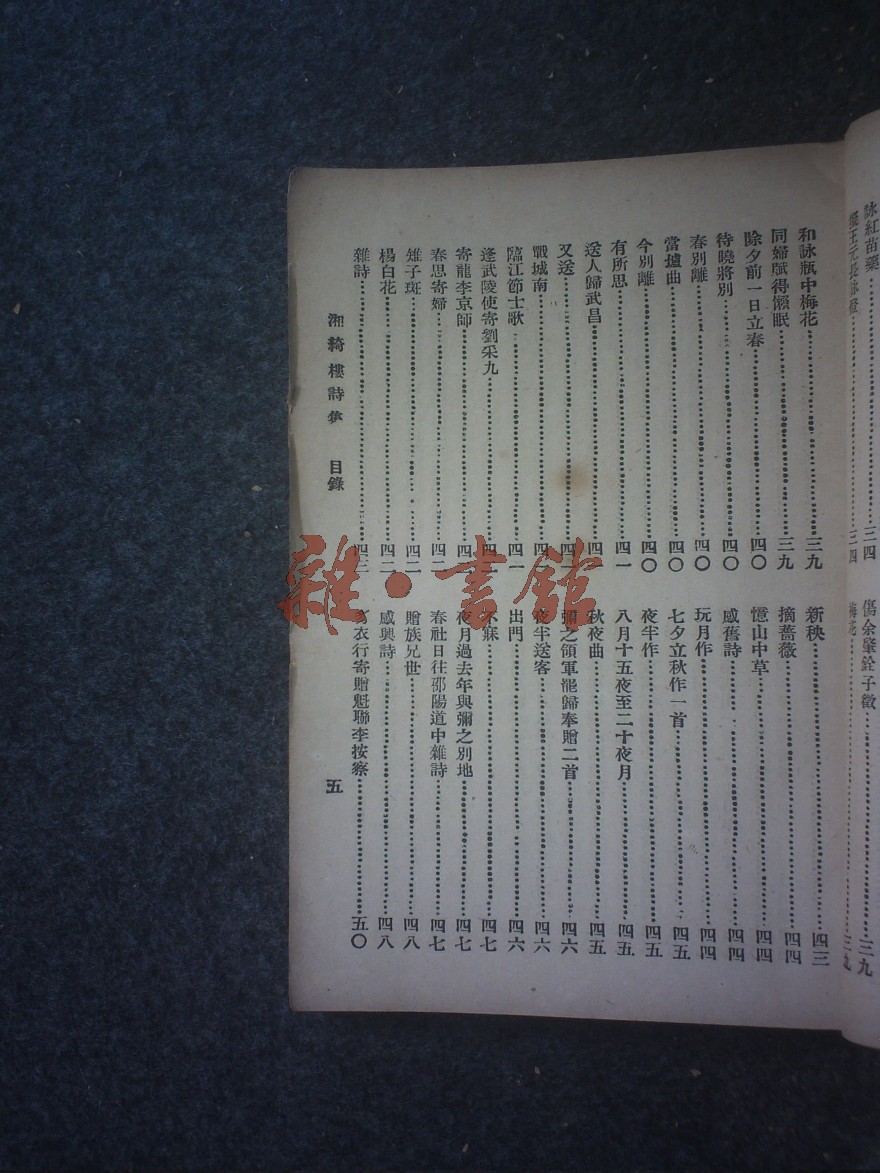 詠紅苗藥……三四
擬王元長詠燈……三四
傷余肇銓子徵……三九
梅花……三九
和詠瓶中梅花……三九
同婦賦得懶眠……三九
除夕前一日立春……四〇
待曉將別……四〇
春別離……四〇
當壚曲……四〇
今別離……四〇
有所思……四一
送人歸武昌……四一
又送
戰城南
臨江節士歌……四一
逢武陵使寄劉采九
寄龍李京師
春思寄婦……四二
雉子斑……四二
楊白花……四二
雜詩……四三
新秧……四三
摘薔薇……四四
憶山中草……四四
感舊詩……四四
玩月作……四四
七夕立秋作一首……四五
夜半作……四五
八月十五夜至二十夜月……四五
秋夜曲……四五
彌之領軍罷歸奉贈二首……四六
夜半送客……四六
出門……四六
不寐……四七
夜月過去年與彌之別地……四七
春社日往邵陽道中雜詩……四七
贈族兄世……四八
感興詩……四八
衣行寄贈魁聯李按察……五〇
湘綺樓詩 目錄
五
雜·書館